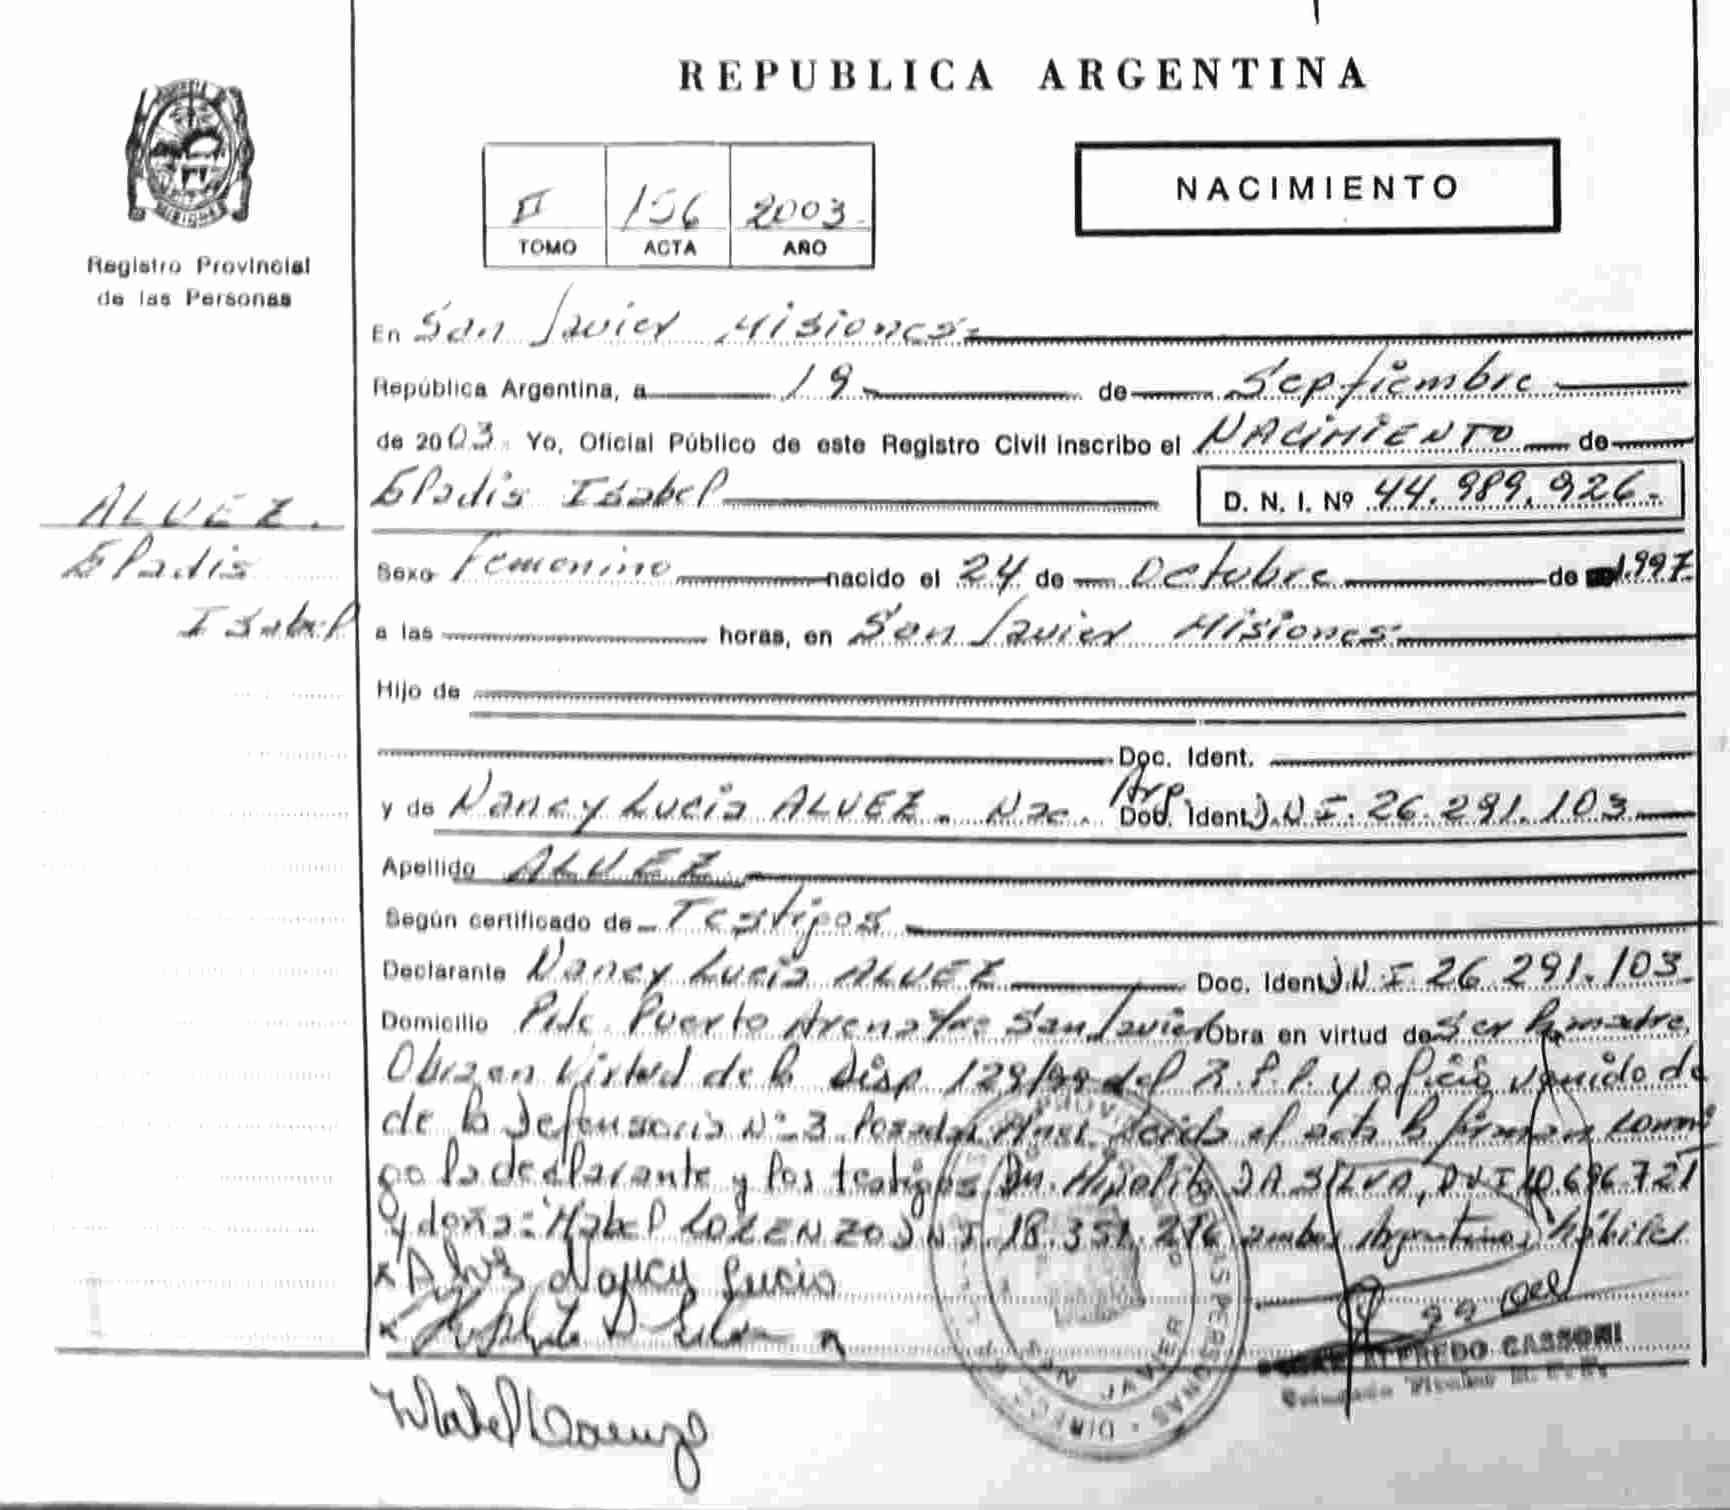 REPUBLICA ARGENTINA
NACIMIENTO
II 156 2003
TOMO ACTA AÑO
MISIONES
Registro Provincial
de las Personas
En San Javier Misiones
República Argentina, a 19 de Septiembre
de 2003 Yo, Oficial Público de este Registro Civil inscribo el NACIMIENTO de
Eladis Isabel D. N. I. Nº 44.989.926
ALVEZ.
Eladis
Isabel
Sexo Femenino nacido el 24 de Octubre de 1.997
a las horas, en San Javier Misiones
Hijo de
Doc. Ident.
y de Nancy Lucia ALVEZ. Nac. Arg. Doc. Ident. D.N.I. 26.291.103
Apellido ALVEZ
Según certificado de Testigos
Declarante Nancy Lucia ALVEZ Doc. Ident. D.N.I. 26.291.103
Domicilio Pje. Puerto Arena San Javier Obra en virtud de ser la madre.
Obra en Virtud de la Disp. 129/99 del R.P.P. y oficio venido de
de la Defensoria Nº 3 Posadas Mnes. Leida el acta la firman conmi
go la declarante y los testigos Dn. Hipolito DA SILVA, DNI 10.696.721
y doña: Mabel LORENZO DNI. 18.351.216 ambos Argentinos, hábiles
x Alvez Nancy Lucia
x Hipolito D Silva
ALFREDO CASSONI
Mabel Lorenzo
SAN JAVIER